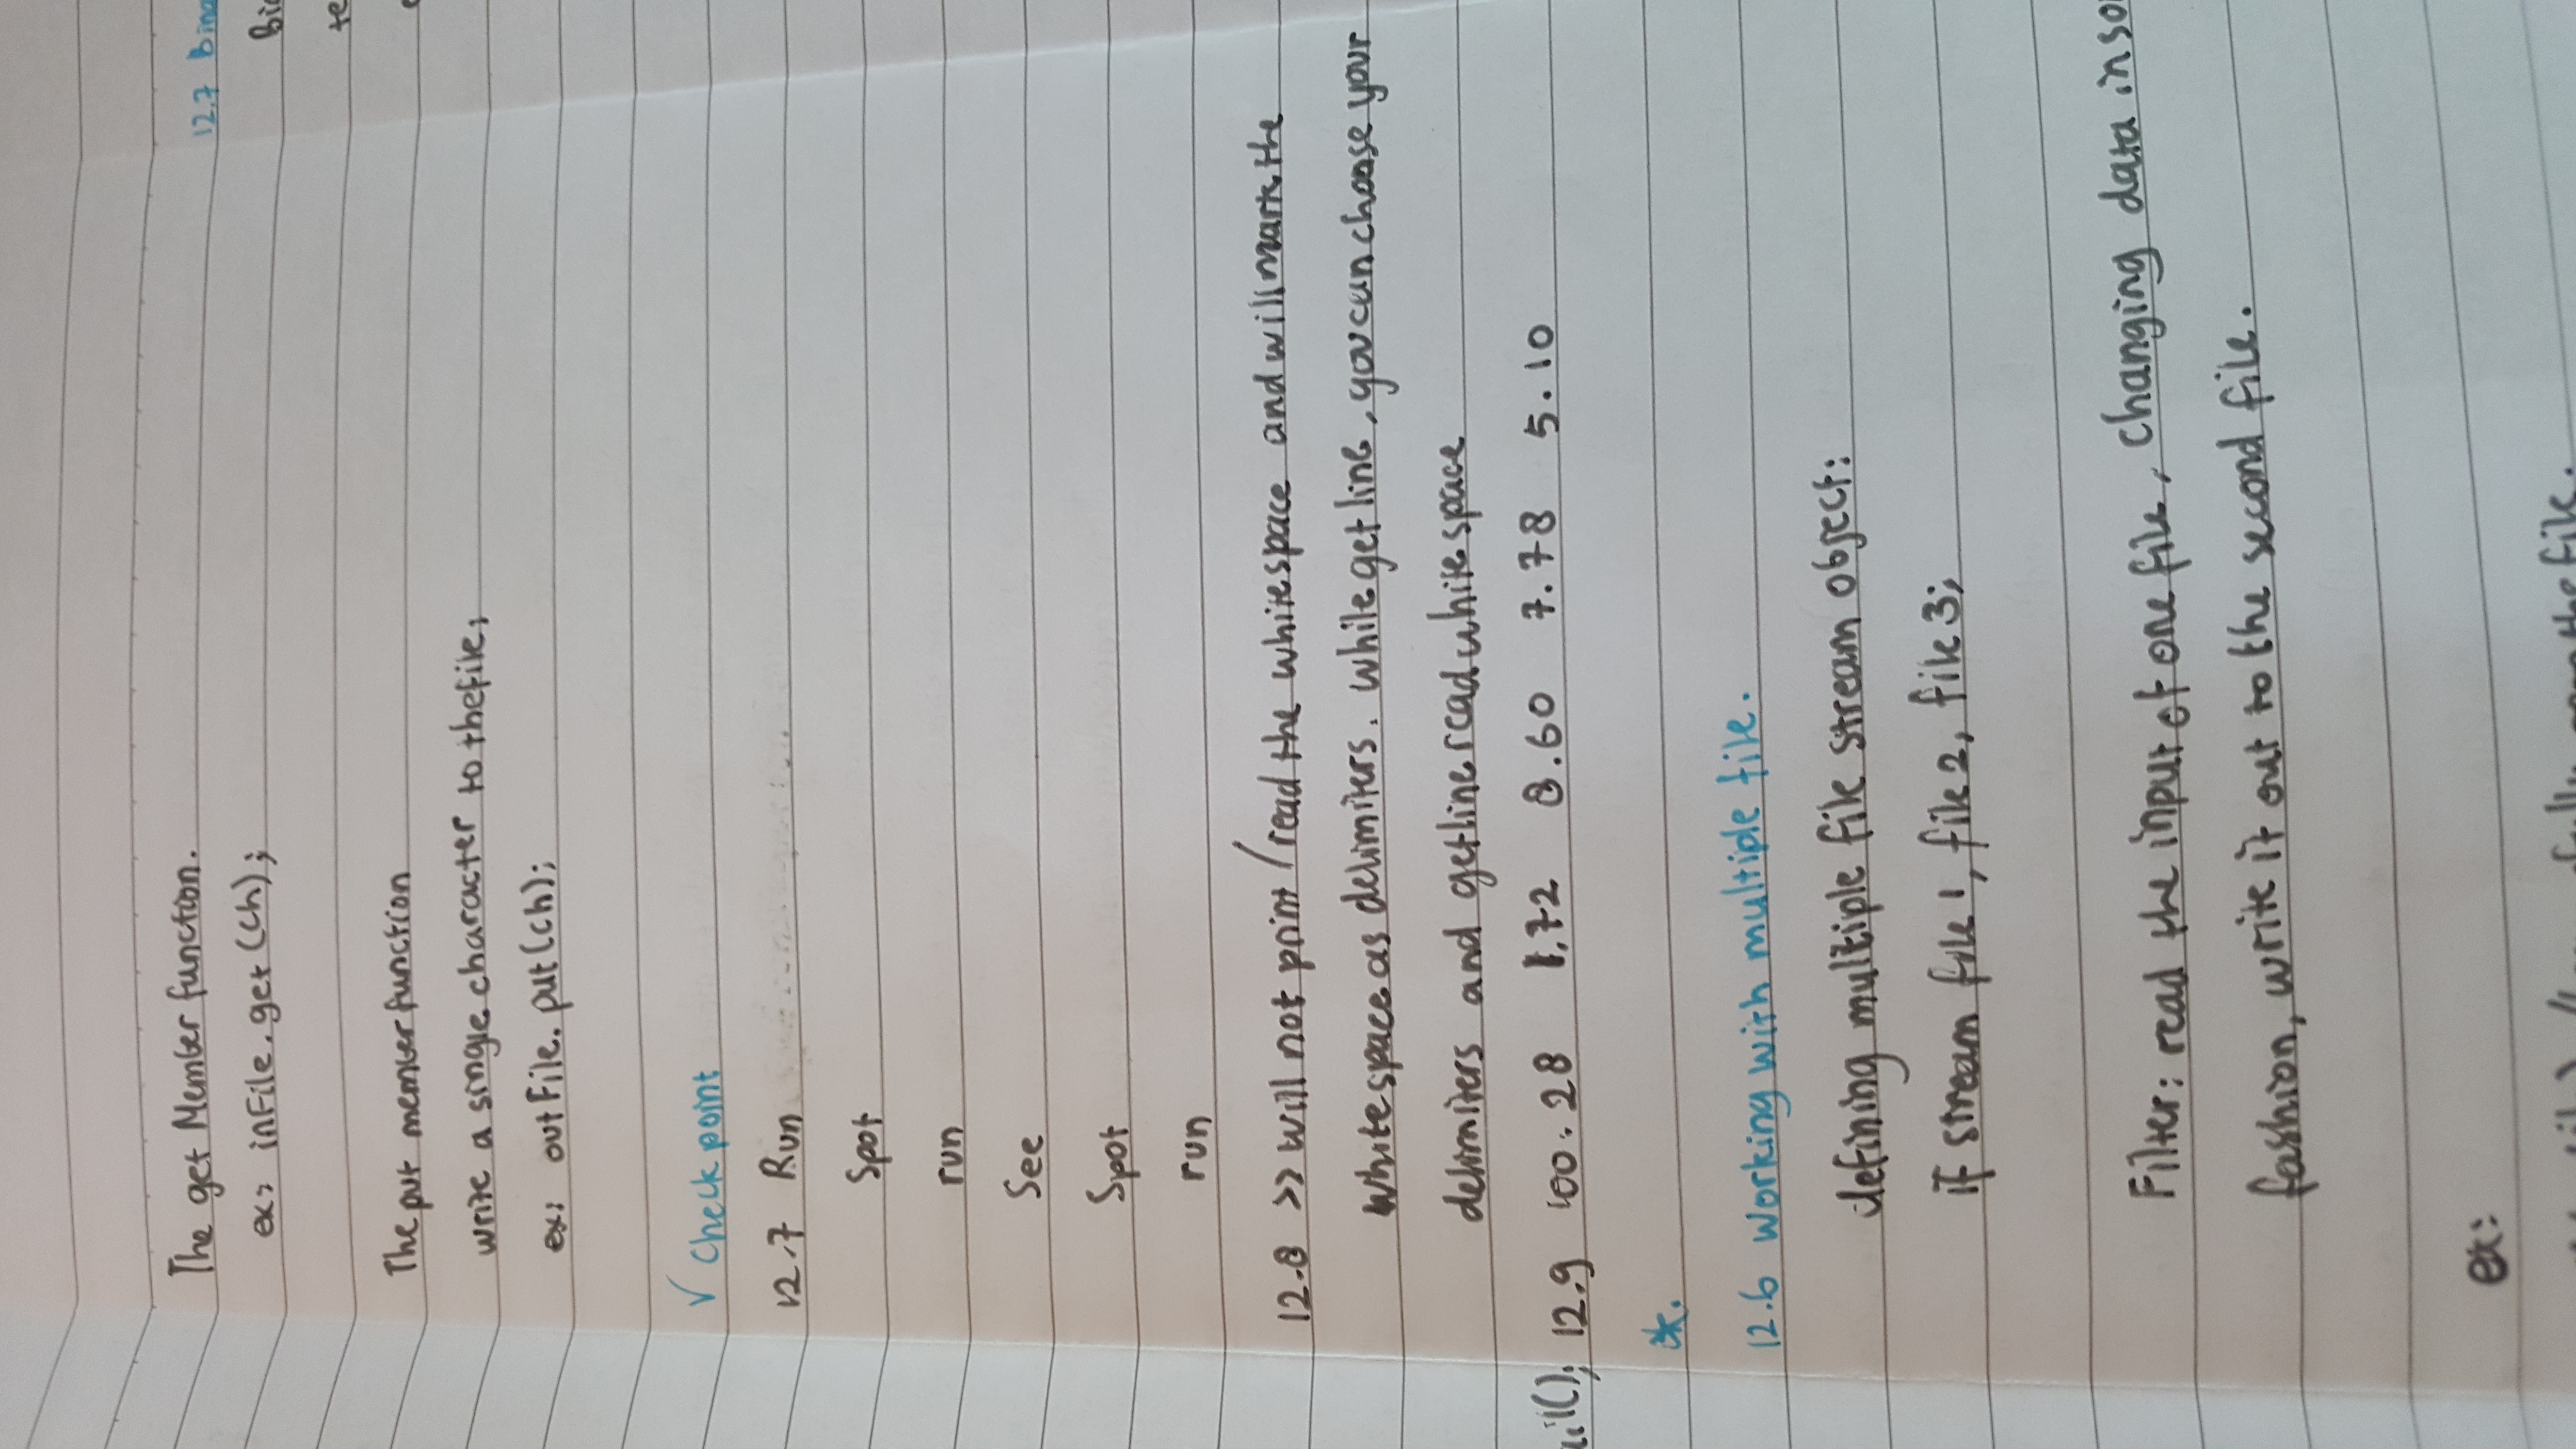 The get Member function.
ex: inFile.get(ch);
The put member function
write a single character to the file;
ex: outFile.put(ch);
√ Check point
12.7 Run
Spot
run
See
Spot
run
12.8 >> will not print / read the whitespace and will mark the
whitespace as delimiters. While getline, you can choose your
delimiters and getline read whitespace
12.9 100.28 1.72 8.60 7.78 5.10
*.
12.6 Working with multiple file.
defining multiple file stream object:
ifstream file1, file2, file3;
Filter: read the input of one file, changing data in so
fashion, write it out to the second file.
ex:
the file.
12.7 Bina
Bi
te